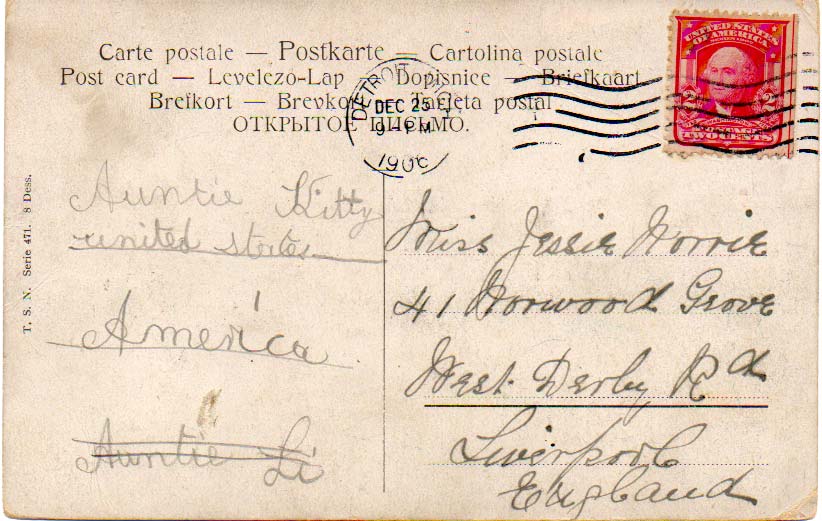 Carte postale — Postkarte — Cartolina postale
Post card — Levelezö-Lap — Dopisnice — Briefkaart
Brefkort — Brevkort — Tarjeta postal
ОТКРЫТОЕ ПИСЬМО.
DETROIT
DEC 25
9 - PM
1906
UNITED STATES
OF AMERICA
2 2
TWO CENTS
T. S. N. Serie 471. 8 Dess.
Auntie Kitty
united states
America
Auntie Li
Miss Jessie Norrie
41 Norwood Grove
West Derby Rd
Liverpool
England